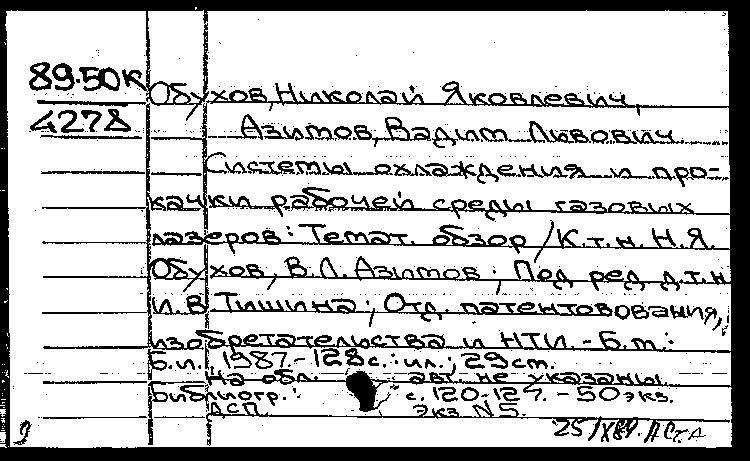 89-50К
4278
Обухов, Николай Яковлевич,
Азимов, Вадим Львович.
Системы охлаждения и про-
качки рабочей среды газовых
лазеров: Темат. обзор / К.т.н. Н.Я.
Обухов, В.Л. Азимов; Под ред. д.т.н
И.В. Тишина; Отд. патентования,
изобретательства и НТИ. - Б.м.:
Б.и., 1987. - 128с.: ил.; 29см.
На обл. авт. не указаны
Библиогр.: с. 120-127. - 50 экз.
ДСП. Экз N 5.
9 25/IX89.